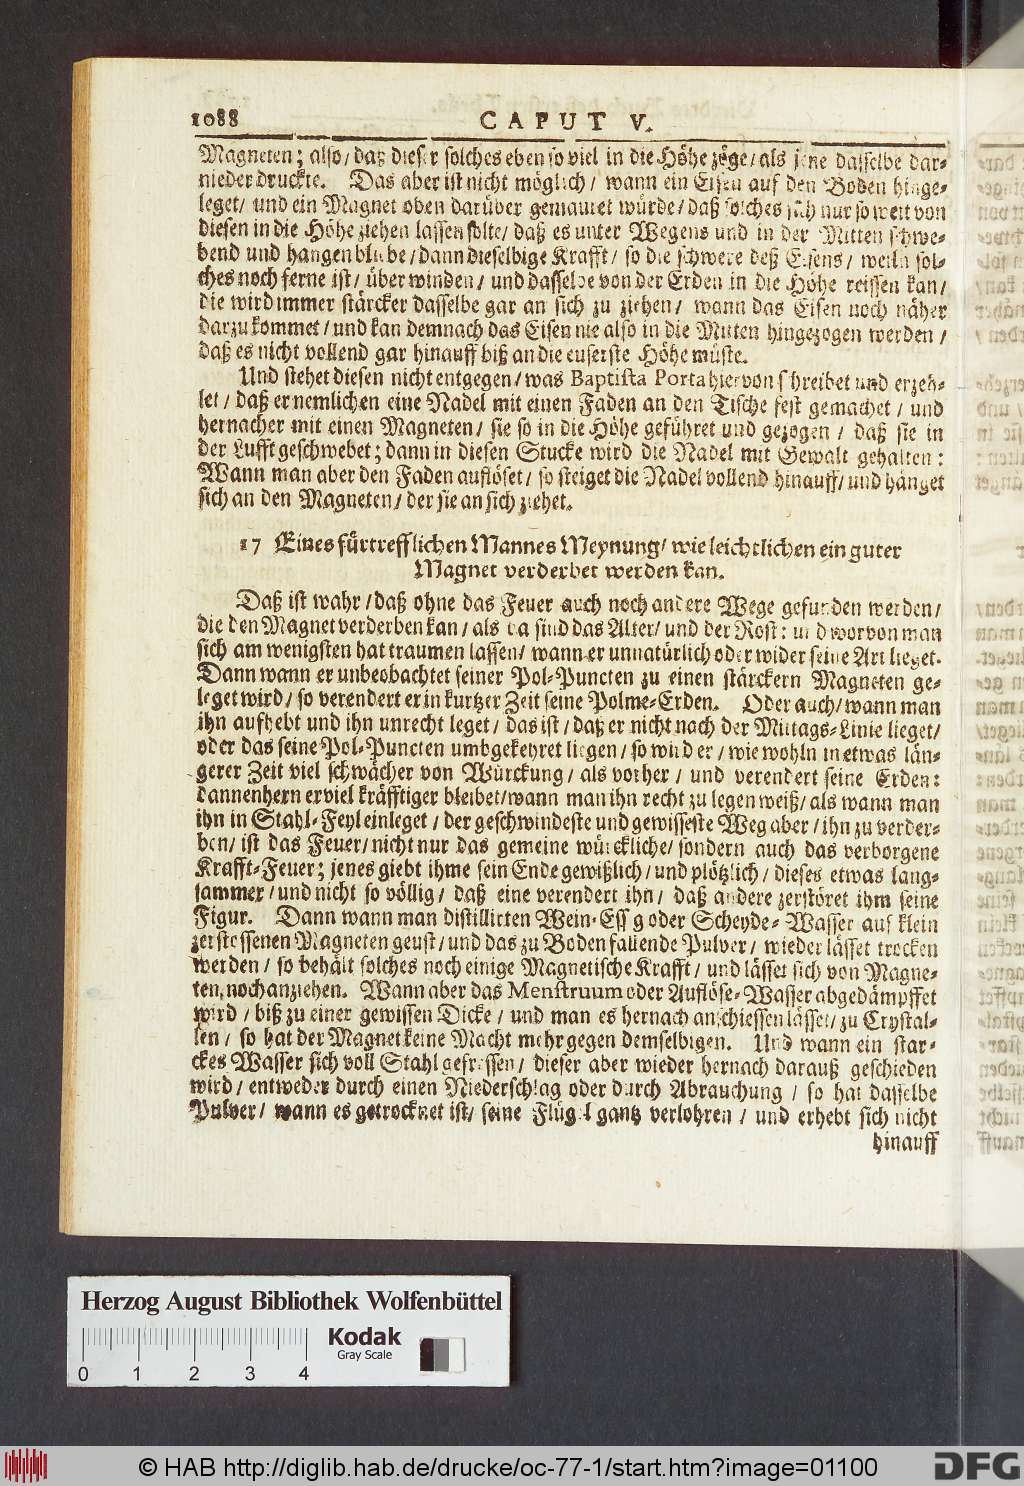 1088
CAPUT V.
Magneten; also/ daß dieser solches eben so viel in die Höhe zöge/ als jene dasselbe dar-
nieder druckte. Das aber ist nicht möglich/ wann ein Eisen auf den Boden hinge-
leget/ und ein Magnet oben darüber gemauret würde/ daß solches sich nur so weit von
diesen in die Höhe ziehen lassen solte/ daß es unter Wegens und in der Mitten schwe-
bend und hangen bliebe/ dann dieselbige Krafft/ so die schwere deß Eisens/ weiln sol-
ches noch ferne ist/ überwinden/ und dasselbe von der Erden in die Höhe reissen kan/
die wird immer stärcker dasselbe gar an sich zu ziehen/ wann das Eisen noch näher
darzu kommet/ und kan demnach das Eisen nie also in die Mitten hingezogen werden/
daß es nicht vollend gar hinauff biß an die euserste Höhe müste.
Und stehet diesen nicht entgegen/ was Baptista Porta hiervon schreibet und erzeh-
let/ daß er nemlichen eine Nadel mit einen Faden an den Tische fest gemachet/ und
hernacher mit einen Magneten/ sie so in die Höhe geführet und gezogen/ daß sie in
der Lufft geschwebet; dann in diesen Stucke wird die Nadel mit Gewalt gehalten:
Wann man aber den Faden auflöset/ so steiget die Nadel vollend hinauff/ und hänget
sich an den Magneten/ der sie an sich ziehet.
17 Eines fürtrefflichen Mannes Meynung/ wie leichtlichen ein guter
Magnet verderbet werden kan.
Daß ist wahr/ daß ohne das Feuer auch noch andere Wege gefunden werden/
die den Magnet verderben kan/ als da sind das Alter/ und der Rost: und worvon man
sich am wenigsten hat traumen lassen/ wann er unnatürlich oder wider seine Art lieget.
Dann wann er unbeobachtet seiner Pol-Puncten zu einen stärckern Magneten ge-
leget wird/ so verendert er in kurtzer Zeit seine Polme-Erden. Oder auch/ wann man
ihn aufhebt und ihn unrecht leget/ das ist/ daß er nicht nach der Mittags-Linie lieget/
oder das seine Pol-Puncten umbgekehret liegen/ so wird er/ wiewohln in etwas län-
gerer Zeit viel schwächer von Würckung/ als vorher/ und verendert seine Erden:
dannenhern er viel kräfftiger bleibet/ wann man ihn recht zu legen weiß/ als wann man
ihn in Stahl-Feyl einleget/ der geschwindeste und gewisseste Weg aber/ ihn zu verder-
ben/ ist das Feuer/ nicht nur das gemeine würckliche/ sondern auch das verborgene
Krafft-Feuer; jenes giebt ihme sein Ende gewißlich/ und plötzlich/ dieses etwas lang-
sammer/ und nicht so völlig/ daß eine verendert ihn/ daß andere zerstöret ihm seine
Figur. Dann wann man distillirten Wein-Essig oder Scheyde-Wasser auf klein
zerstossenen Magneten geust/ und das zu Boden fallende Pulver/ wieder lässet trocken
werden/ so behält solches noch einige Magnetische Krafft/ und lässet sich von Magne-
ten noch anziehen. Wann aber das Menstruum oder Auflöse-Wasser abgedämpffet
wird/ biß zu einer gewissen Dicke/ und man es hernach anschiessen lässet/ zu Crystal-
len/ so hat der Magnet keine Macht mehr gegen demselbigen. Und wann ein star-
ckes Wasser sich voll Stahl gefressen/ dieser aber wieder hernach darauß geschieden
wird/ entweder durch einen Niederschlag oder durch Abrauchung/ so hat dasselbe
Pulver/ wann es getrocknet ist/ seine Flügel gantz verlohren/ und erhebt sich nicht
hinauff
Herzog August Bibliothek Wolfenbüttel
Kodak
Gray Scale
0 1 2 3 4
© HAB http://diglib.hab.de/drucke/oc-77-1/start.htm?image=01100
DFG